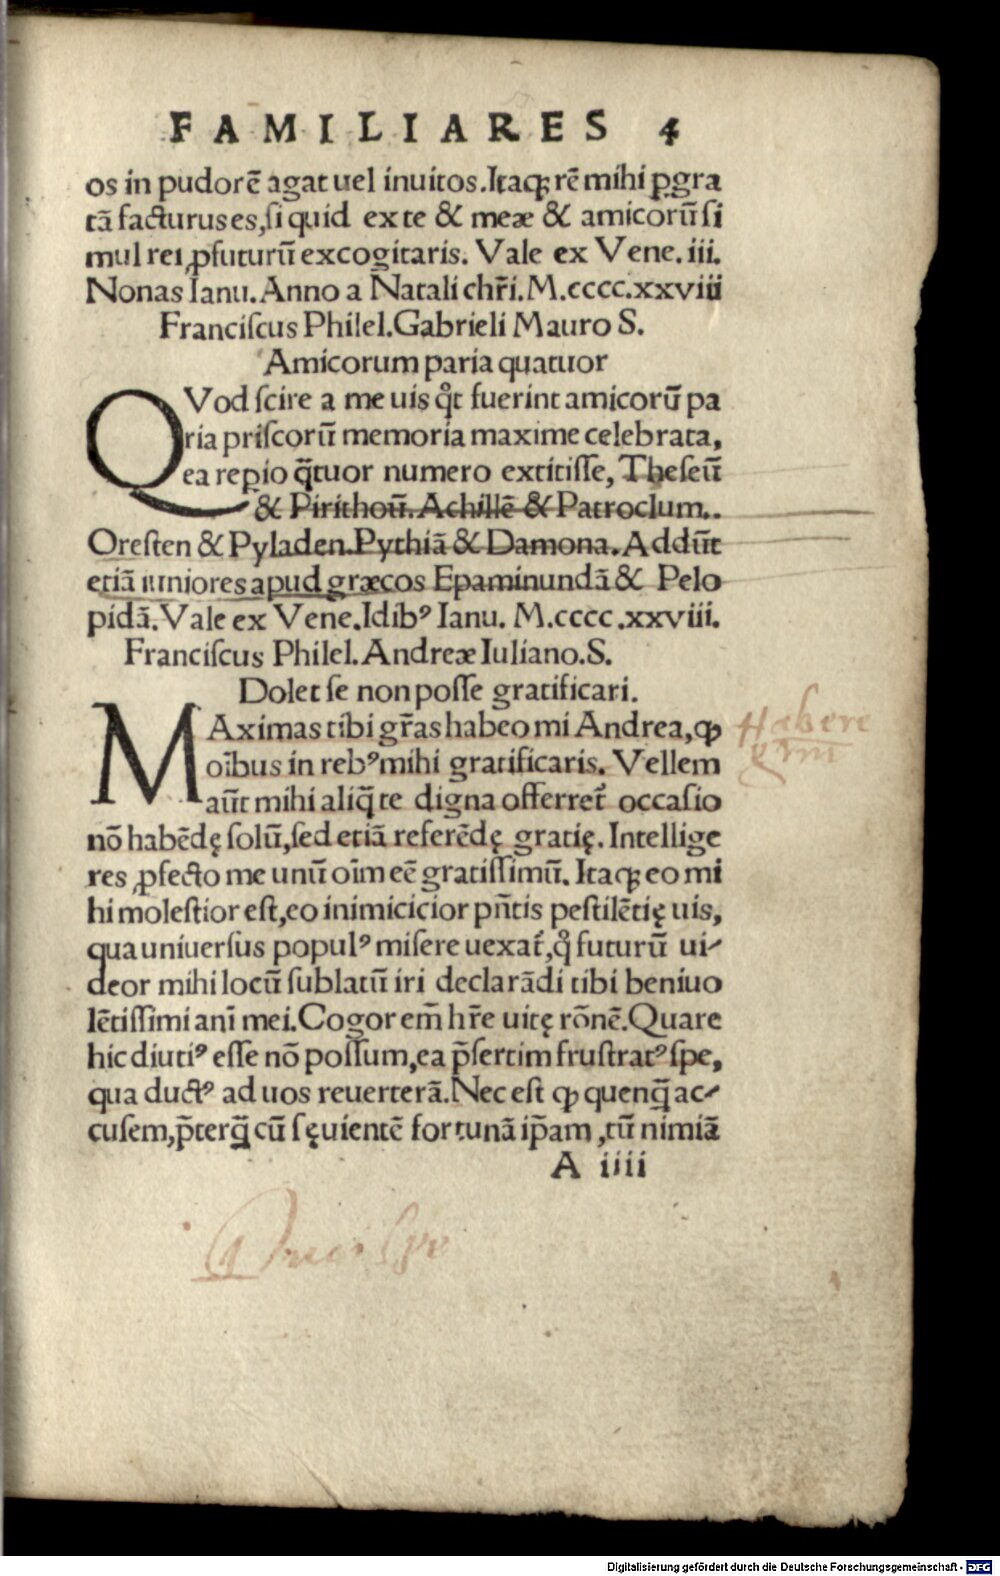 FAMILIARES 4
os in pudorē agat uel inuitos. Itaqꝫ rē mihi ꝑgra
tā facturus es, si quid ex te & meæ & amicorū si
mul rei ꝓfuturū excogitaris. Vale ex Vene. iii.
Nonas Ianu. Anno a Natali chr̄i. M.cccc.xxviii
Franciscus Philel. Gabrieli Mauro S.
Amicorum paria quatuor
QVod scire a me uis qͦt fuerint amicorū pa
ria priscorū memoria maxime celebrata,
ea reꝑio q̄tuor numero extitisse, Theseū
& Pirithoū. Achillē & Patroclum.
Oresten & Pyladen. Pythiā & Damona. Addūt
etiā iuniores apud græcos Epaminundā & Pelo
pidā. Vale ex Vene. Idibꝰ Ianu. M.cccc.xxviii.
Franciscus Philel. Andreæ Iuliano. S.
Dolet se non posse gratificari.
MAximas tibi gr̄as habeo mi Andrea, ꝙ
oībus in rebꝰ mihi gratificaris. Vellem
aūt mihi aliq̄ te digna offerret᷑ occasio
nō habēdę solū, sed etiā referēdę gratię. Intellige
res ꝓfecto me unū oīm eē gratissimū. Itaqꝫ eo mi
hi molestior est, eo inimicicior pn̄tis pestilētię uis,
qua uniuersus populꝰ misere uexat᷑, qͦ futurū ui-
deor mihi locū sublatū iri declarādi tibi beniuo
lētissimi anī mei. Cogor em̄ hr̄e uitę rōnē. Quare
hic diutiꝰ esse nō possum, ea p̄sertim frustratꝰ spe,
qua ductꝰ ad uos reuerterā. Nec est ꝙ quenq̄ ac-
cusem, p̄terq̄ cū sęuientē fortunā ip̄am, tū nimiā
A iiii
Habere
gr̄m
Duci spe
Digitalisierung gefördert durch die Deutsche Forschungsgemeinschaft - DFG